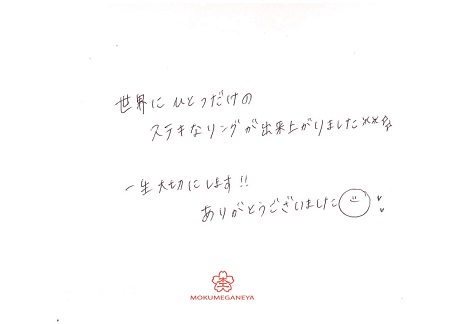 世界にひとつだけの
ステキなリングが出来上がりました**
一生大切にします!!
ありがとうございました
MOKUMEGANEYA